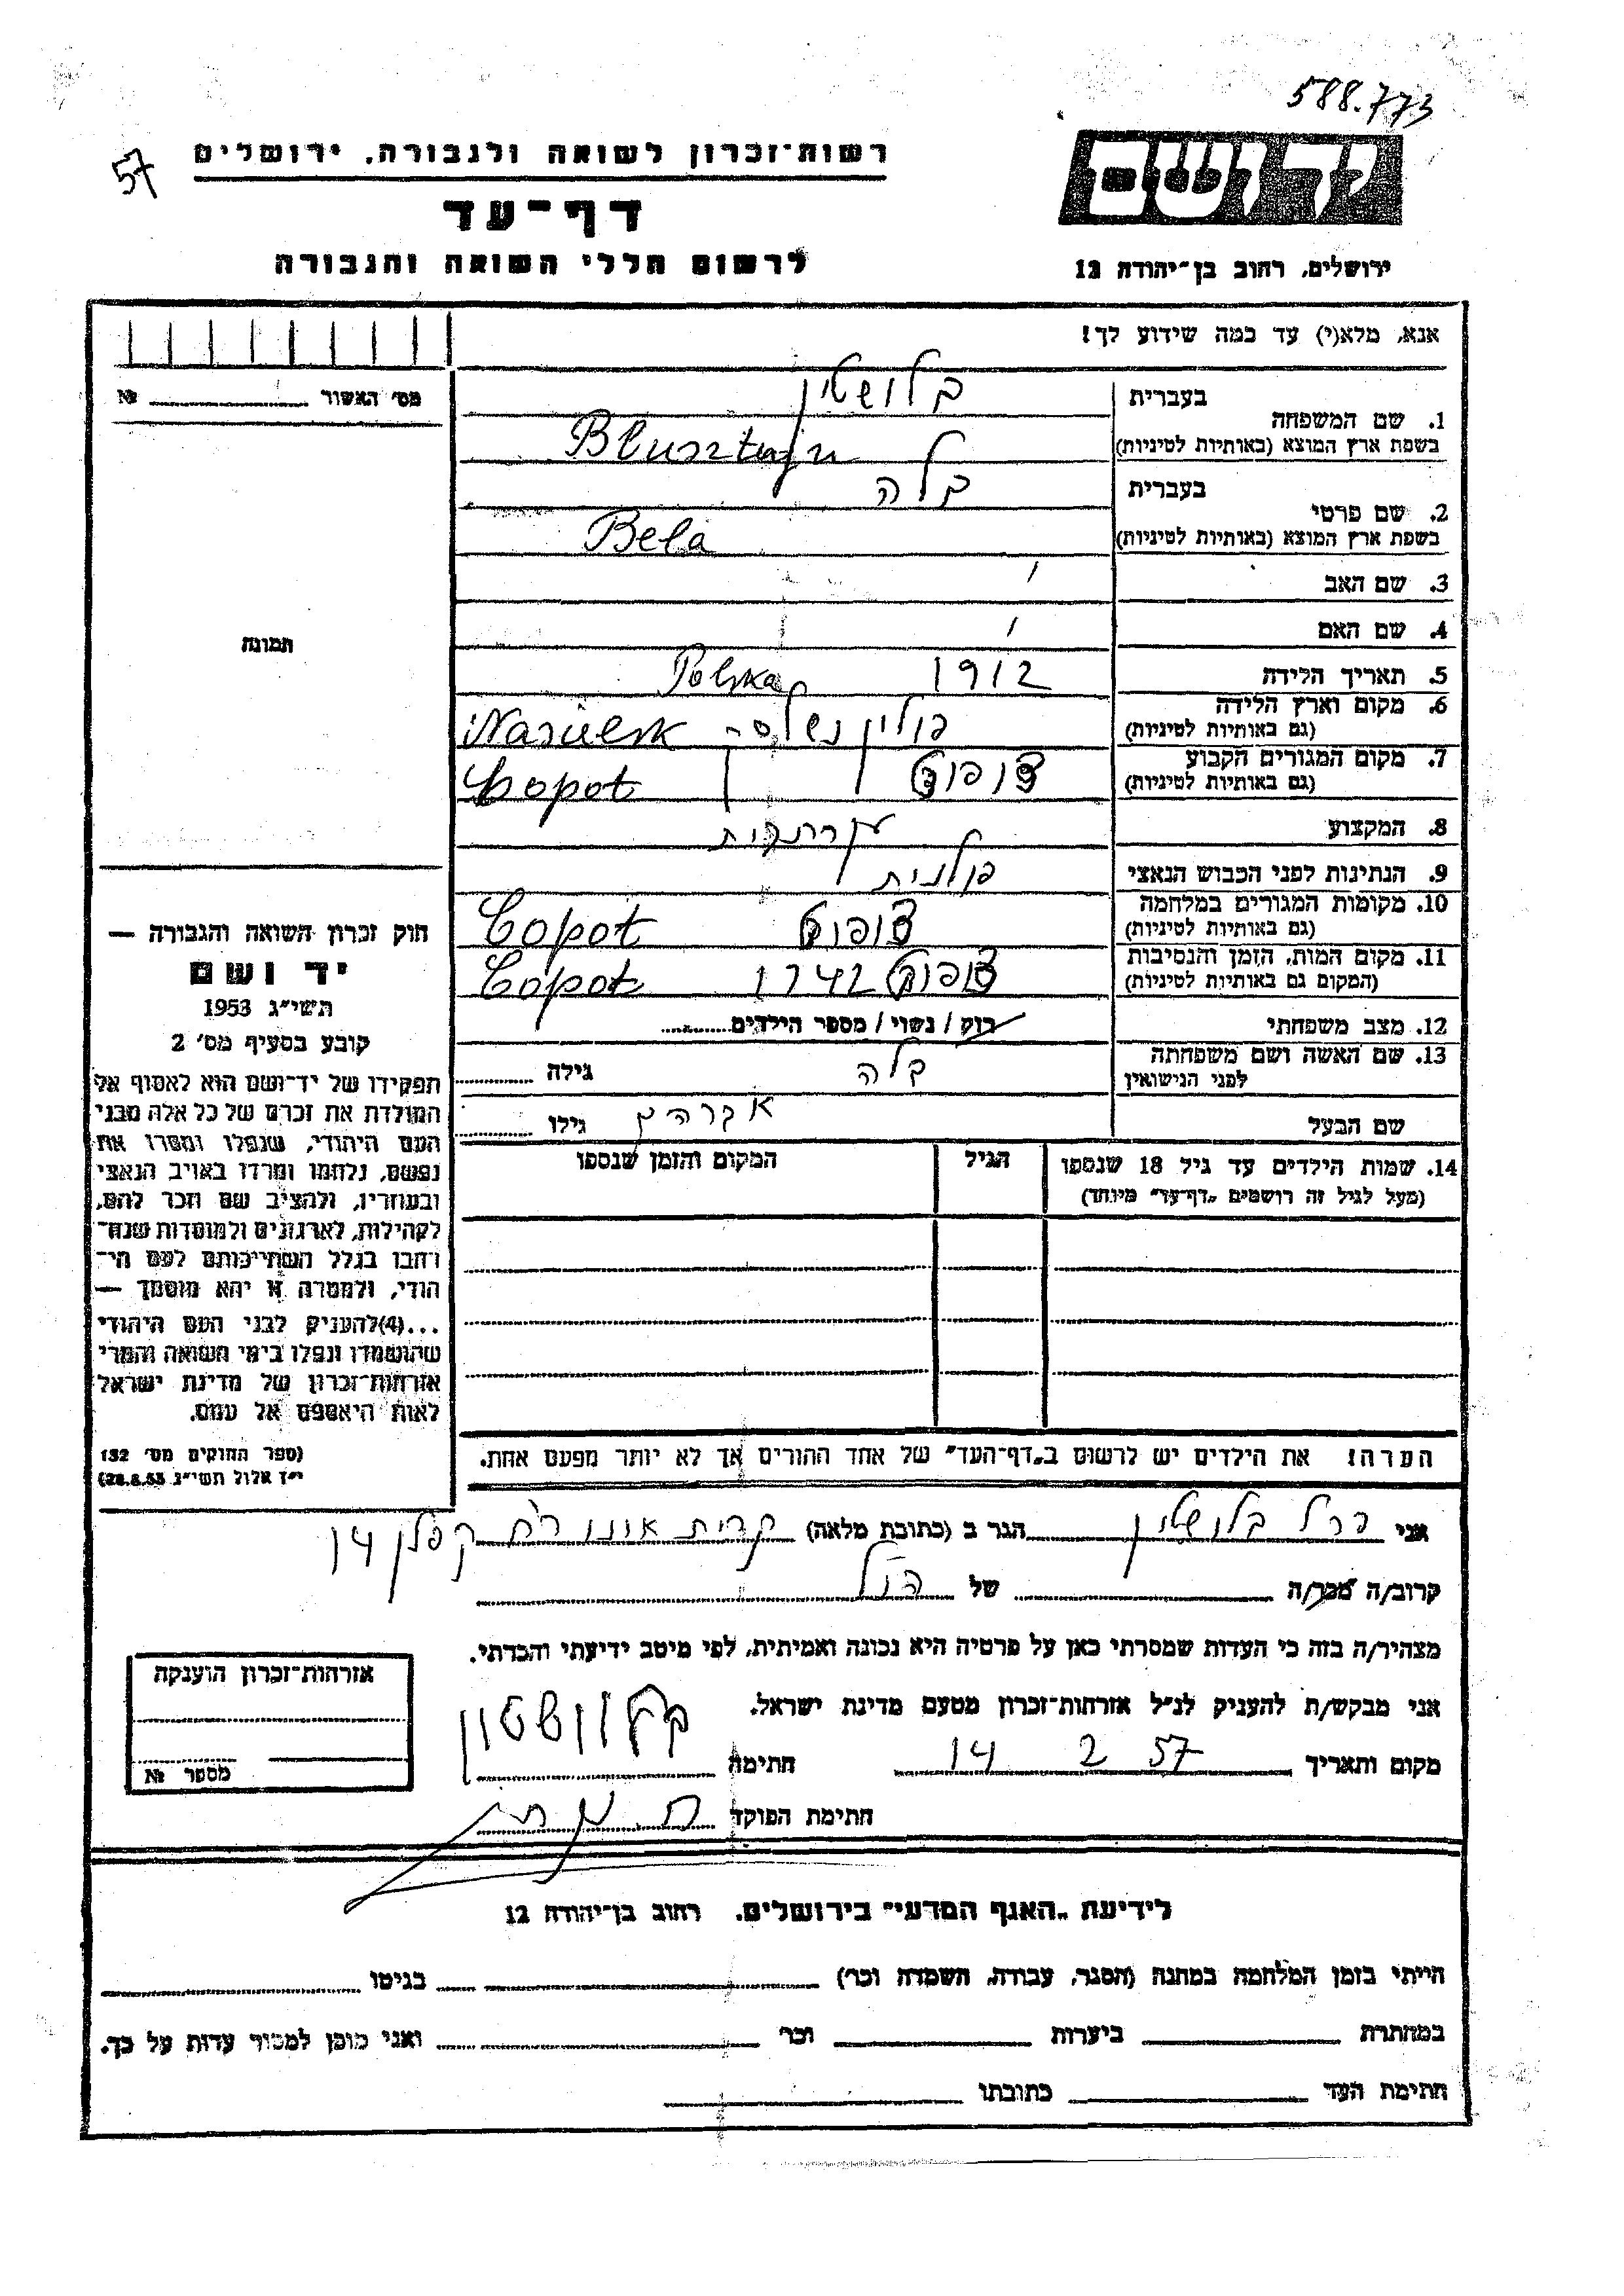 588.773
57
רשות־זכרון לשואה ולגבורה, ירושלים
יד ושם
דף־עד
לרשום חללי השואה והגבורה
ירושלים, רחוב בן־יהודה 12
אנא, מלא(י) עד כמה שידוע לך!
מס׳ האשור № 
בעברית בלושטין
1. שם המשפחה
בשפת ארץ המוצא (באותיות לטיניות) Blusztajn
בעברית בלה
2. שם פרטי
בשפת ארץ המוצא (באותיות לטיניות) Bela
3. שם האב
4. שם האם
תמונה
5. תאריך הלידה 1912 Polska
6. מקום וארץ הלידה
(גם באותיות לטיניות) פולין Nasielsk
7. מקום המגורים הקבוע
(גם באותיות לטיניות) צופוט Copot
8. המקצוע עקרת בית
9. הנתינות לפני הכבוש הנאצי פולנית
10. מקומות המגורים במלחמה
(גם באותיות לטיניות) צופוט Copot
11. מקום המות, הזמן והנסיבות
(המקום גם באותיות לטיניות) צופוט 1942 Copot
12. מצב משפחתי רוק / נשוי / מספר הילדים
13. שם האשה ושם משפחתה
לפני הנישואין בלה גילה
שם הבעל אברהם גילו
14. שמות הילדים עד גיל 18 שנספו הגיל המקום והזמן שנספו
(מעל לגיל זה רושמים „דף־עד״ מיוחד)
חוק זכרון השואה והגבורה —
יד ושם
תשי״ג 1953
קובע בסעיף מס׳ 2
תפקידו של יד־ושם הוא לאסוף אל
המולדת את זכרם של כל אלה מבני
העם היהודי, שנפלו ומסרו את
נפשם, נלחמו ומרדו באויב הנאצי
ובעוזריו, ולהציב שם וזכר להם,
לקהילות, לארגונים ולמוסדות שנח־
רבו בגלל השתייכותם לעם הי־
הודי, ולמטרה זו יהא מוסמך —
...(4) להעניק לבני העם היהודי
שהושמדו ונפלו בימי השואה והמרי
אזרחות־זכרון של מדינת ישראל
לאות היאספם אל עמם.
(ספר החוקים מס׳ 132
י״ז אלול תשי״ג 28.8.53)
הערה: את הילדים יש לרשום ב„דף־העד״ של אחד ההורים אך לא יותר מפעם אחת.
אני ברל בלושטין הגר ב (כתובת מלאה) קרית אונו רח קפלן 14
קרוב/ה מכר/ה של הנ״ל
מצהיר/ה בזה כי העדות שמסרתי כאן על פרטיה היא נכונה ואמיתית, לפי מיטב ידיעתי והכרתי.
אני מבקש/ת להעניק לנ״ל אזרחות־זכרון מטעם מדינת ישראל.
מקום ותאריך 14 2 57 חתימה בלושטין
חתימת הפוקד
אזרחות־זכרון הוענקה
מספר №
לידיעת „האגף המדעי״ בירושלים, רחוב בן־יהודה 12
הייתי בזמן המלחמה במחנה (הסגר, עבודה, השמדה וכר׳) בגיטו
במחתרת ביערות וכר׳ ואני מוכן למסור עדות על כך.
חתימת העד כתובתו